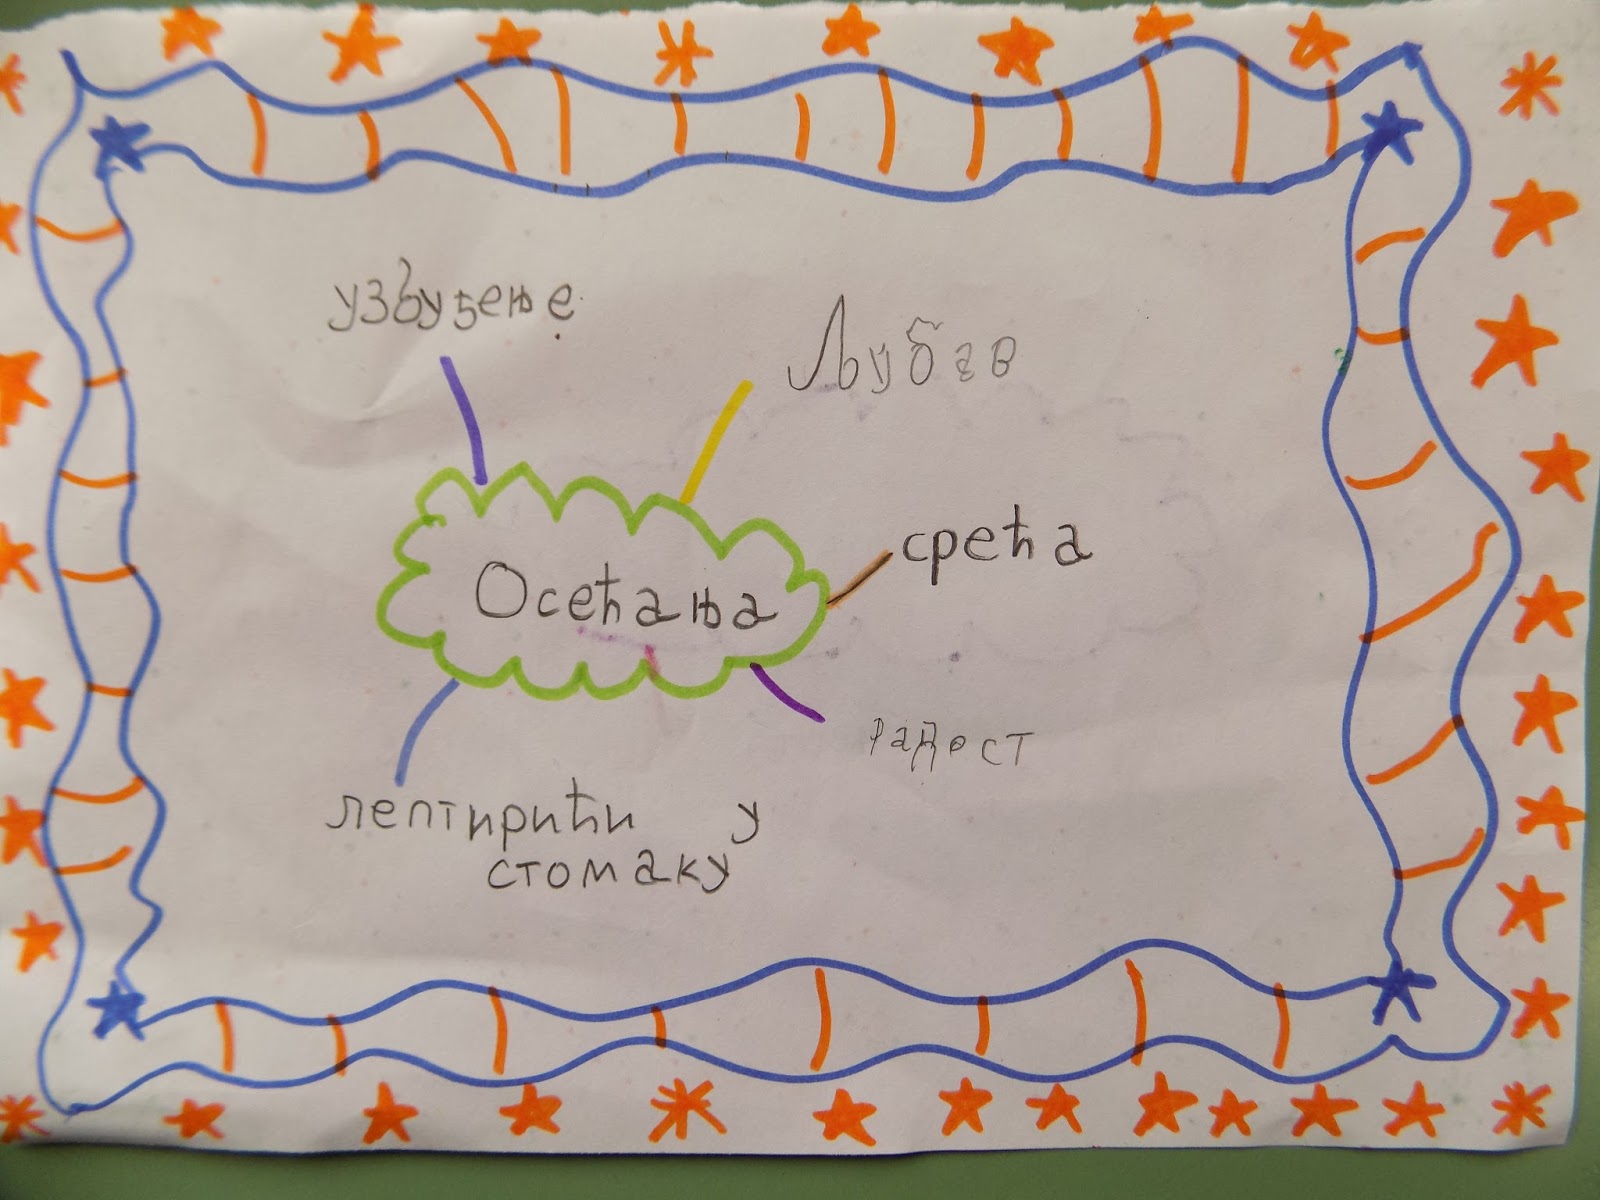 узвуђење
Љубав
срећа
Осећања
радост
лептирићи у
стомаку